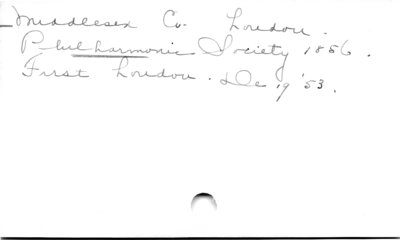 Middlesex Co. London.
Philharmonic Society 1856.
First London. De 19 '53.